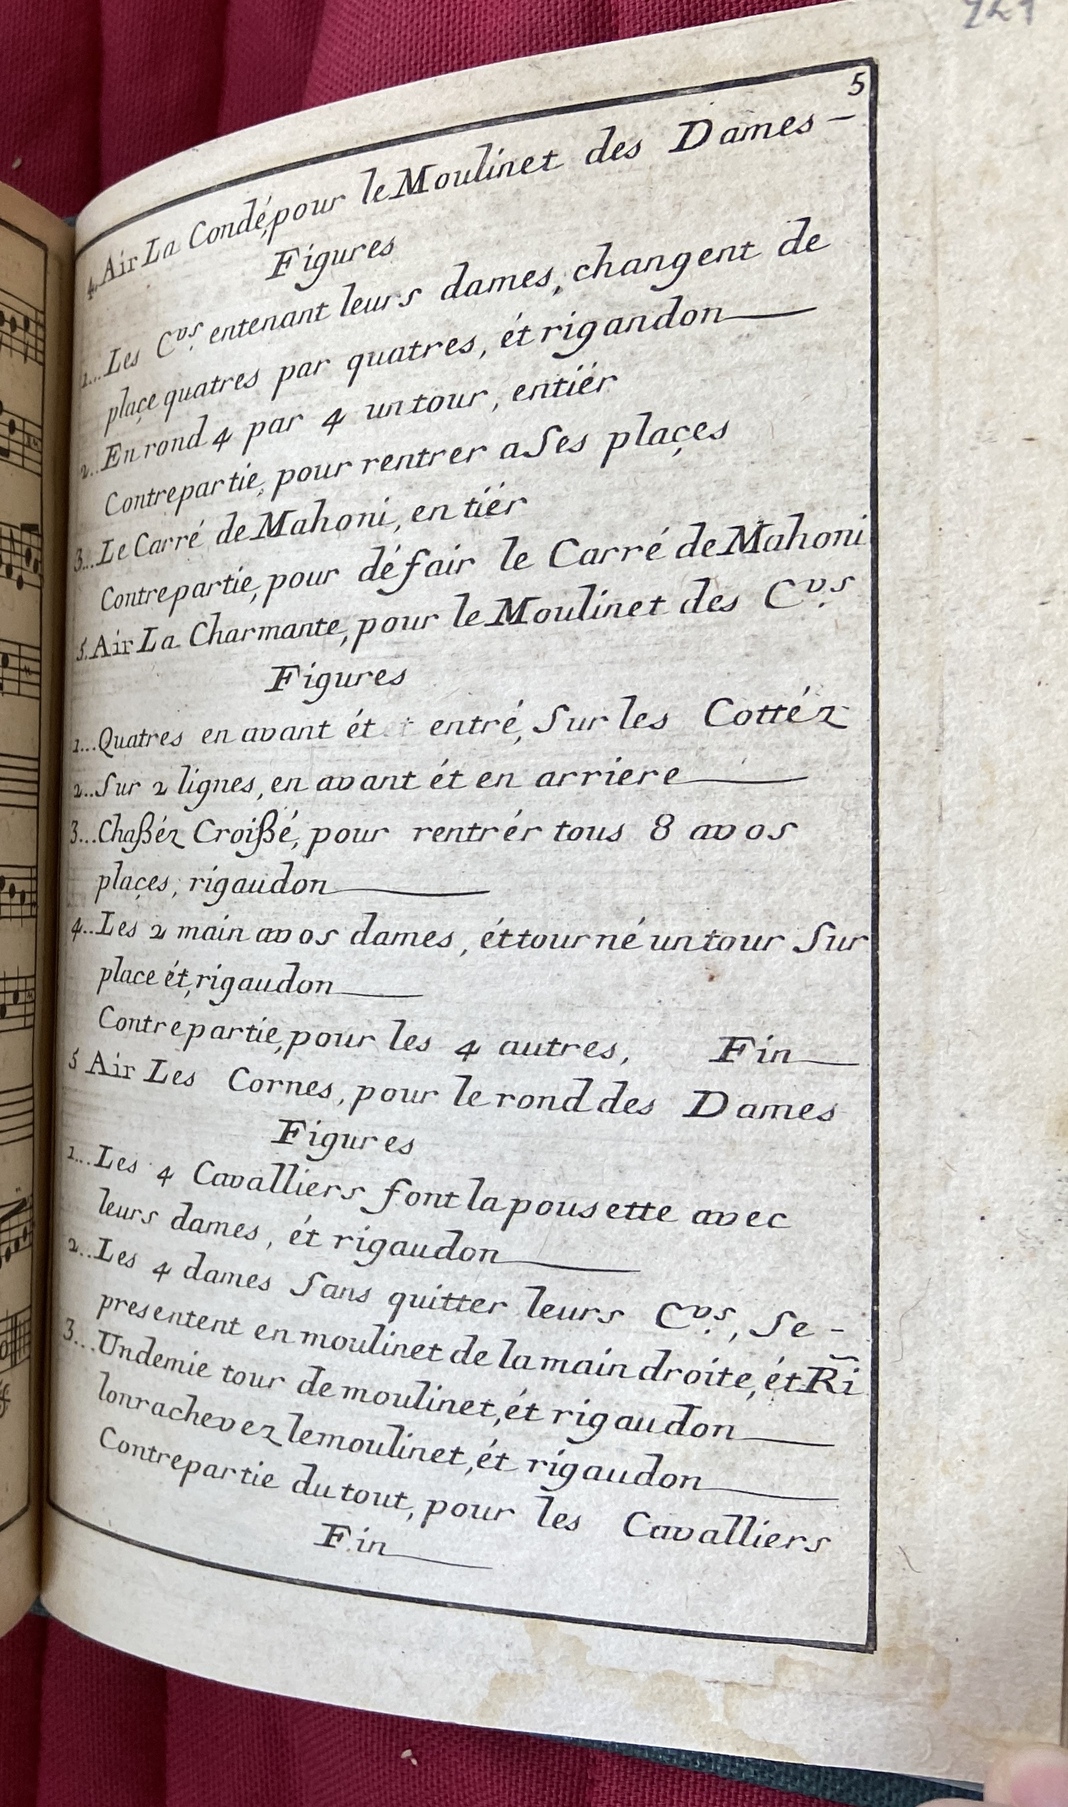 921
5
4. Air La Condé, pour le Moulinet des Dames —
Figures
1... Les C.vs entenant leurs dames, changent de
plaçe quatres par quatres, ét rigandon
2.. En rond 4 par 4 un tour, entiér
Contrepartie, pour rentrer a ses plaçes
3... Le Carré de Mahoni, entiér
Contrepartie, pour défair le Carré de Mahoni
5. Air La Charmante, pour le Moulinet des C.vs
Figures
1... Quatres en avant ét entré, sur les Cottéz
2.. Sur 2 lignes, en avant ét en arriere
3... Chaßéz Croißé, pour rentrér tous 8 avos
plaçes, rigaudon
4.. Les 2 main avos dames, ét tourné un tour sur
place ét, rigaudon
Contrepartie, pour les 4 autres, Fin
5 Air Les Cornes, pour le rond des Dames
Figures
1... Les 4 Cavalliers font la pousette avec
leurs dames, ét rigaudon
2.. Les 4 dames sans quitter leurs C.vs, se -
presentent en moulinet de la main droite, ét Ri
3... Undemie tour de moulinet, ét rigaudon
lonrachevez lemoulinet, ét rigaudon
Contrepartie du tout, pour les Cavalliers
Fin